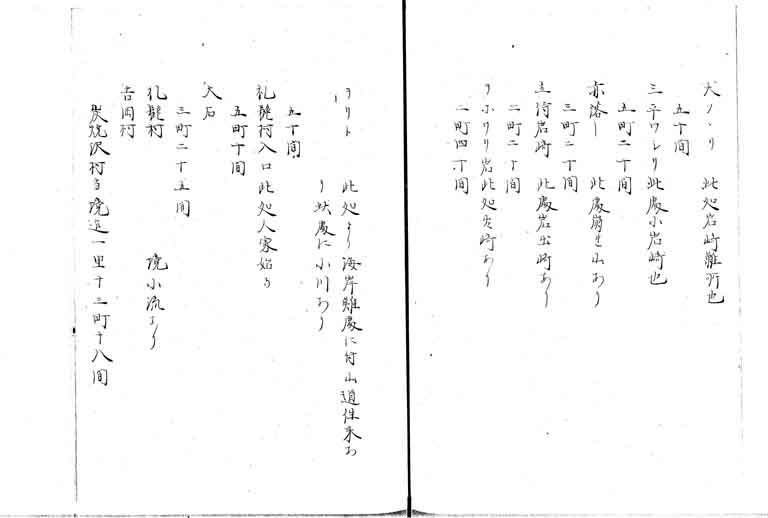 犬ノヽリ 此処岩崎難所也
五十間
三平ワレリ此處小岩崎也
五町二十間
赤落し 此處崩せ山あり
三町二十間
立待岩崎 此處岩出崎あり
二町二十間
ヲホワリ岩此処炎崎あり
二町四十間
ヨリト 此処より海岸難處に付山道往来あ
り此處に小川あり
五十間
札髭村入口此処人家始る
五町十間
大石
三町二十五間
札髭村 境小流あり
吉岡村
炭焼沢村より境迄一里十三町十八間